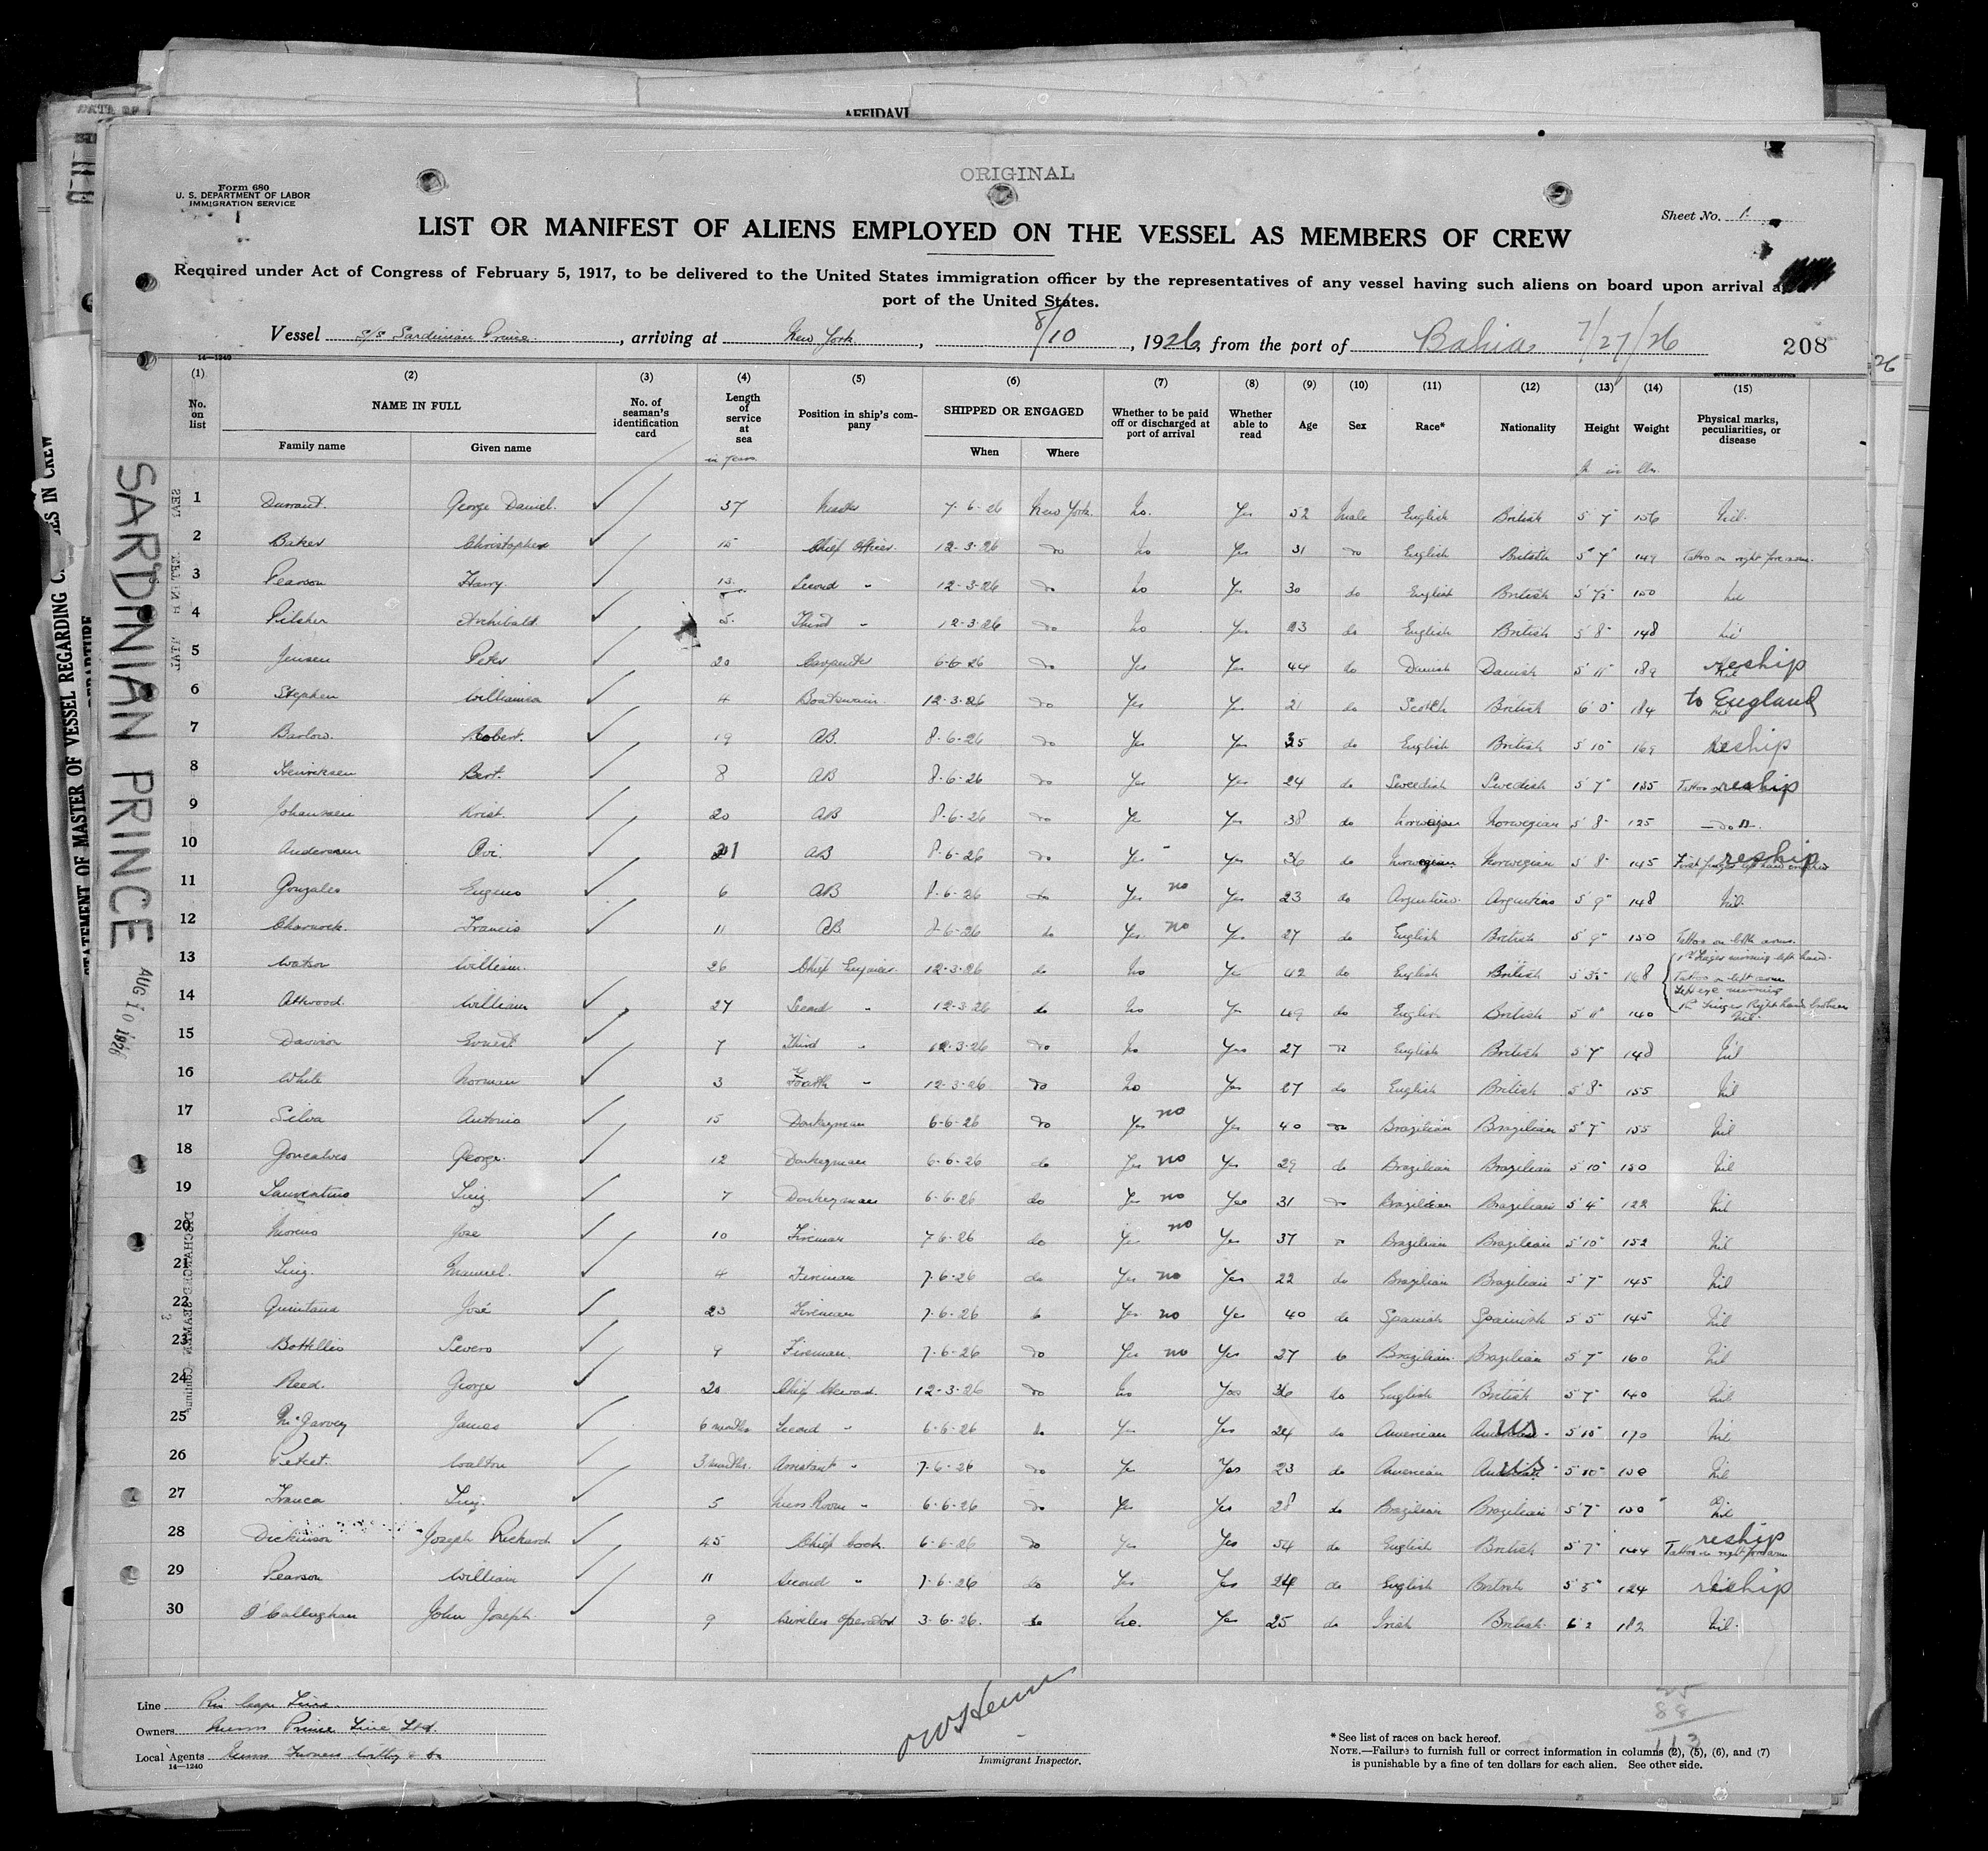 AFFIDAVI
ORIGINAL
Form 680
U. S. DEPARTMENT OF LABOR
IMMIGRATION SERVICE
Sheet No. 1.
LIST OR MANIFEST OF ALIENS EMPLOYED ON THE VESSEL AS MEMBERS OF CREW
Required under Act of Congress of February 5, 1917, to be delivered to the United States immigration officer by the representatives of any vessel having such aliens on board upon arrival a
port of the United States.
Vessel s/s Sardinian Prince, arriving at New York, 8/10, 1926, from the port of Bahia 7/27/26 208
14—1240
(1) (2) (3) (4) (5) (6) (7) (8) (9) (10) (11) (12) (13) (14) (15)
No. on list NAME IN FULL Family name Given name No. of seaman's identification card Length of service at sea Position in ship's company SHIPPED OR ENGAGED When Where Whether to be paid off or discharged at port of arrival Whether able to read Age Sex Race* Nationality Height Weight Physical marks, peculiarities, or disease
in years ft in lbs.
1 Durrant. George Daniel. 37 Master 7-6-26 New York. No. Yes 52 Male English British 5 7 156 Nil.
2 Baker Christopher 15 Chief Officer. 12-3-26 do No Yes 31 do English British 5 7 149 Tattoo on right forearm.
3 Pearson Harry. 13. Second " 12-3-26 do No Yes 30 do English British 5 150 Nil
4 Pilsher Archibald 5. Third " 12-3-26 do No Yes 23 do English British 5 8 148 Nil
5 Jensen Peter 20 Carpenter 6-6-26 do Yes Yes 44 do Danish Danish 5 11 189 Nil reship
6 Stephen Williamson 4 Boatswain. 12-3-26 do Yes Yes 21 do Scotch British 6 0 184 Nil to England
7 Barlow. Robert. 19 AB. 8-6-26 do Yes Yes 35 do English British 5 10 169 reship
8 Henricksen Bert. 8 AB 8-6-26 do Yes Yes 24 do Sweedish Swedish 5 7 135 Tattoo reship
9 Johannsen Krist. 20 AB 8-6-26 do Ye Yes 38 do Norwegian Norwegian 5 8 125 — do —
10 Andersen Ovi. 21 AB 8-6-26 do Yes Yes 36 do Norwegian Norwegian 5 8 145 First finger left hand reship
11 Gonzales Eugenio 6 AB 8-6-26 do Yes no Yes 23 do Argentino. Argentino 5 9 148 Nil.
12 Charnock. Francis 11 AB 8-6-26 do Yes. no Yes 27 do English British 5 9 150 Tattoo on both arms.
13 Watson William. 26 Chief Engineer. 12-3-26 do No Ye 42 do English British 5 168 1st finger missing left hand. Tattoo on left arm Left eye missing
14 Attwood. William 27 Second " 12-3-26 do No Yes 49 do English British 5 11 140 1st finger Right hand broken Nil.
15 Davison Ernest. 7 Third " 12-3-26 do No Yes 27 do English British 5 7 148 Nil
16 White Norman 3 Fourth " 12-3-26 do No Yes 27 do English British 5 8 155 Nil
17 Silva Antonio 15 Donkeyman 6-6-26 do Yes no Yes 40 do Brazilian Brazilian 5 7 155 Nil
18 Goncalves George. 12 Donkeyman 6-6-26 do Yes no Yes 29 do Brazilian Brazilian 5 10 150 Nil
19 Laurentino Luiz. 7 Donkeyman 6-6-26 do Yes no Yes 31 do Brazilian Brazilian 5 4 122 Nil
20 Moreno Jose 10 Fireman 7-6-26 do Yes no Yes 37 do Brazilian Brazilian 5 10 152 Nil
21 Luiz. Manuel. 4 Fireman 7-6-26 do Yes no Yes 22 do Brazilian Brazilian 5 7 145 Nil
22 Quintana José 23 Fireman 7-6-26 do Yes no Yes 40 do Spanish Spanish 5 5 145 Nil
23 Bottellio Severo 9 Fireman. 7-6-26 do Yes no Yes 27 do Brazilian. Brazilian 5 7 160 Nil
24 Reed. George 20 Chief Steward. 12-3-26 do No Yes 36 do English British 5 7 140 Nil
25 McGarvey James 6 months Second " 6-6-26 do Yes Yes 24 do American US 5 10 170 Nil
26 Petret. Walton 3 months. Assistant " 7-6-26 do Ye Yes 23 do American US 5 10 150 Nil
27 Franca Luiz. 5 Mess Room " 6-6-26 do Yes Yes 28 do Brazilian Brazilian 5 7 150 Nil
28 Dickinson Joseph Richard 45 Chief Cook. 6-6-26 do Ye Yes 54 do English British 5 7 144 Tattoo on right forearm reship
29 Pearson William 11 Second " 7-6-26 do Yes Yes 24 do English British 5 5 124 reship
30 O'Callaghan John Joseph. 9 Wireless Operator 3-6-26. do No. Yes 25 do Irish British. 6 2 182 Nil.
Line
Owners Messrs Prince Line Ltd.
Local Agents Messrs Furness Withy & Co
14—1240
Immigrant Inspector.
88
113
* See list of races on back hereof.
NOTE.—Failure to furnish full or correct information in columns (2), (5), (6), and (7)
is punishable by a fine of ten dollars for each alien. See other side.
SARDINIAN PRINCE
AUG 10 1926
DISCHARGED SEAMEN
STATEMENT OF MASTER OF VESSEL REGARDING C
ES IN CREW
DEPARTURE
26